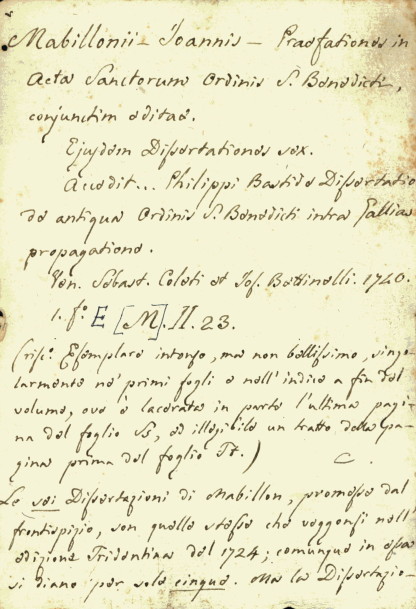 Mabillonii - Joannis - Praefationes in
Acta Sanctorum Ordinis S. Benedicti,
conjunctim editae.
Ejusdem Dissertationes sex.
Accedit... Philippi Bastide Dissertatio
de antiqua Ordinis S. Benedicti intra Gallias
propagatione.
Ven. Sebast. Coleti et Jos. Bettinelli. 1740.
1. f.º E [M]. II. 23.
Esemplare intonso, ma non bellissimo, singo-
larmente ne' primi fogli e nell'indice a fin del
volume, ove è lacerata in parte l'ultima pagi-
na del foglio Ss, ed illegibile un tratto della pa-
gina prima del foglio Tt.)
C.
Le sei Dissertazioni di Mabillon, promesse dal
frontispizio, son quelle stesse che veggonsi nell'
edizione Tridentina del 1724; comunque in essa
si diano per sole cinque. Ma la Dissertazio-